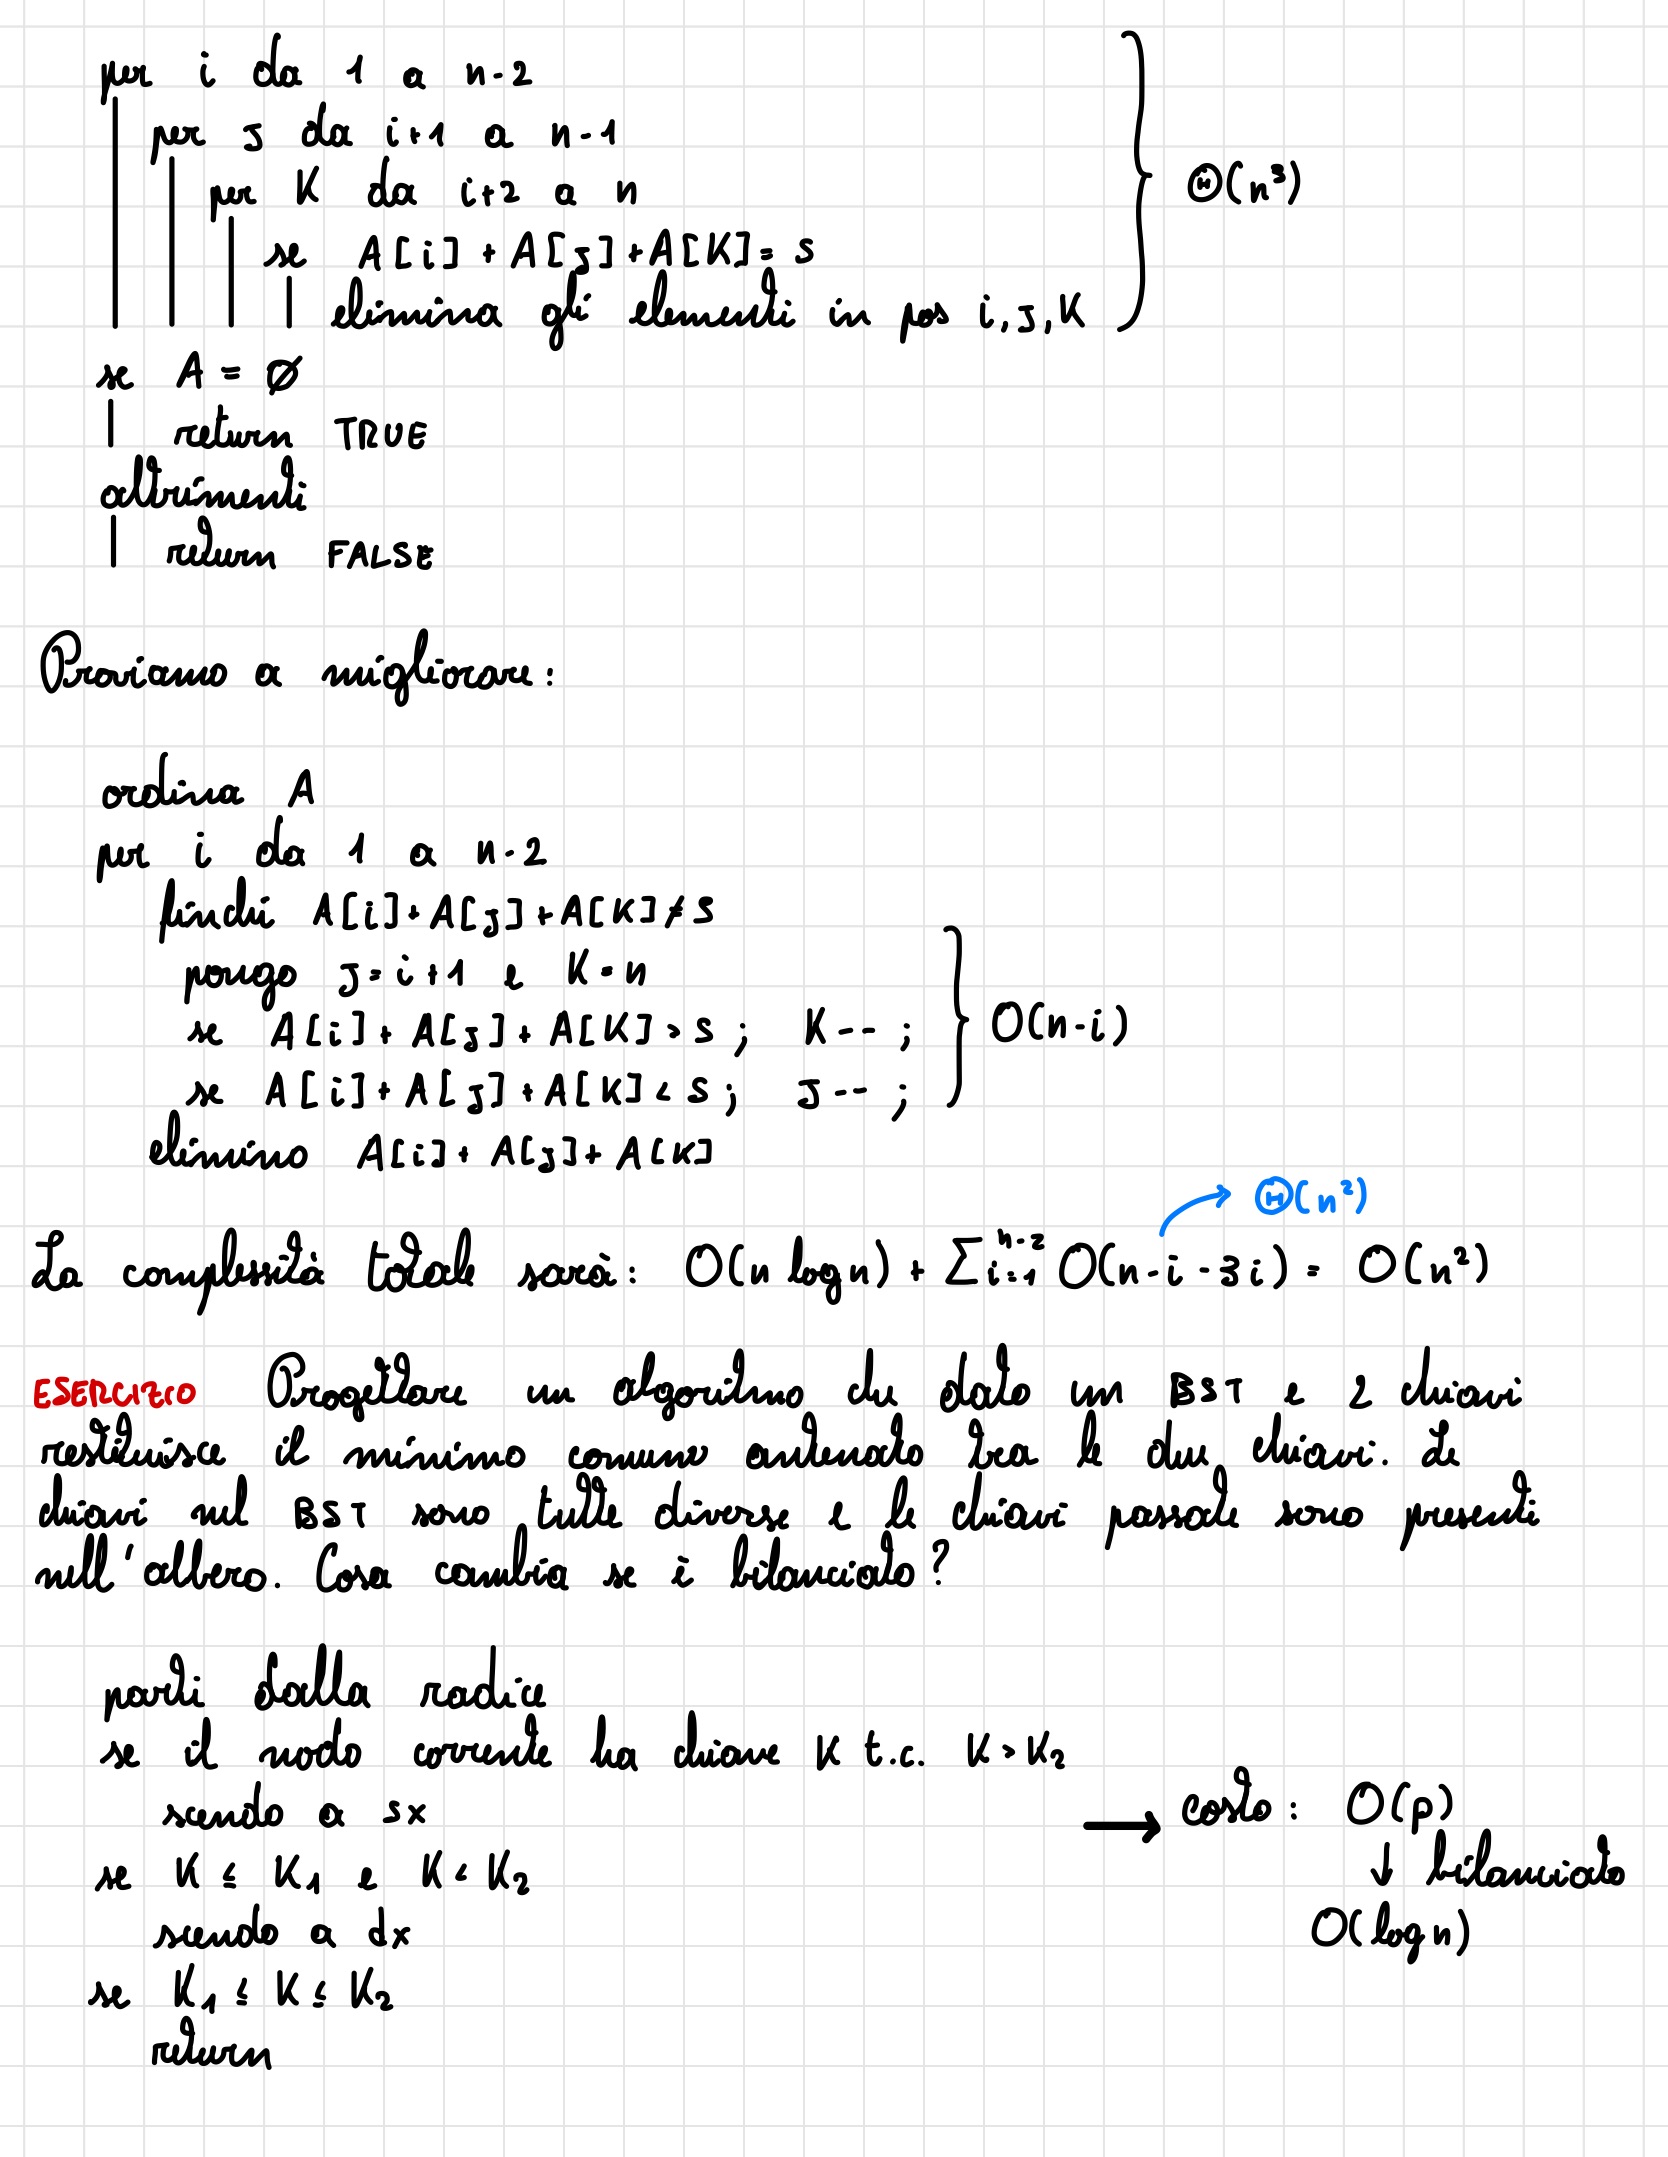 per i da 1 a n-2
per J da i+1 a n-1
per K da i+2 a n
se A[i] + A[J] + A[K] = S
elimina gli elementi in pos i, J, K
Θ(n³)
se A = Ø
return TRUE
altrimenti
return FALSE
Proviamo a migliorare:
ordina A
per i da 1 a n-2
finchi A[i] + A[J] + A[K] ≠ S
pongo J = i+1 e K = n
se A[i] + A[J] + A[K] > S ; K-- ;
se A[i] + A[J] + A[K] < S ; J-- ;
O(n-i)
elimino A[i] + A[J] + A[K]
Θ(n²)
La complessità totale sarà: O(n log n) + ∑ᵢ₌₁ⁿ⁻² O(n-i-3i) = O(n²)
ESERCIZIO Progettare un algoritmo che dato un BST e 2 chiavi
restituisce il minimo comune antenato tra le due chiavi. Le
chiavi nel BST sono tutte diverse e le chiavi passate sono presenti
nell'albero. Cosa cambia se è bilanciato?
parti dalla radice
se il nodo corrente ha chiave K t.c. K > K₂
scendo a sx
se K ≤ K₁ e K < K₂
scendo a dx
se K₁ ≤ K ≤ K₂
return
→ costo: O(p)
↓ bilanciato
O(log n)